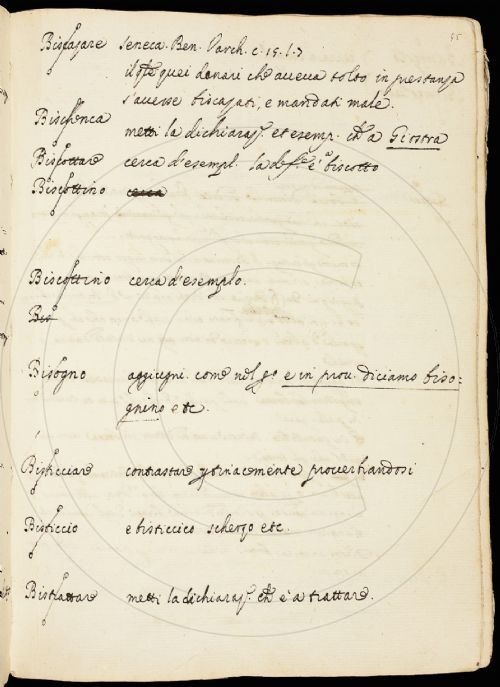 45
Biscazare seneca. Ben. Varch. c. 15. l. 7
il qle quei denari che aveva tolto in prestanza
s'avesse biscazati, e mandati male.
Bischenca metti la dichiaraz. et esemp. che a Giostra
Biscottare cerca d'esempl. la è biscotto
Biscottino cerca
Biscottino cerca d'esemplo.
Bis
Bisogno aggiugni. come nel e in prov. diciamo biso-
gnino etc.
Bisticciare contrastare proverbiandosi
Bisticcio e bisticcico scherzo etc.
Bistrattare metti la dichiaraz. che è a trattare.